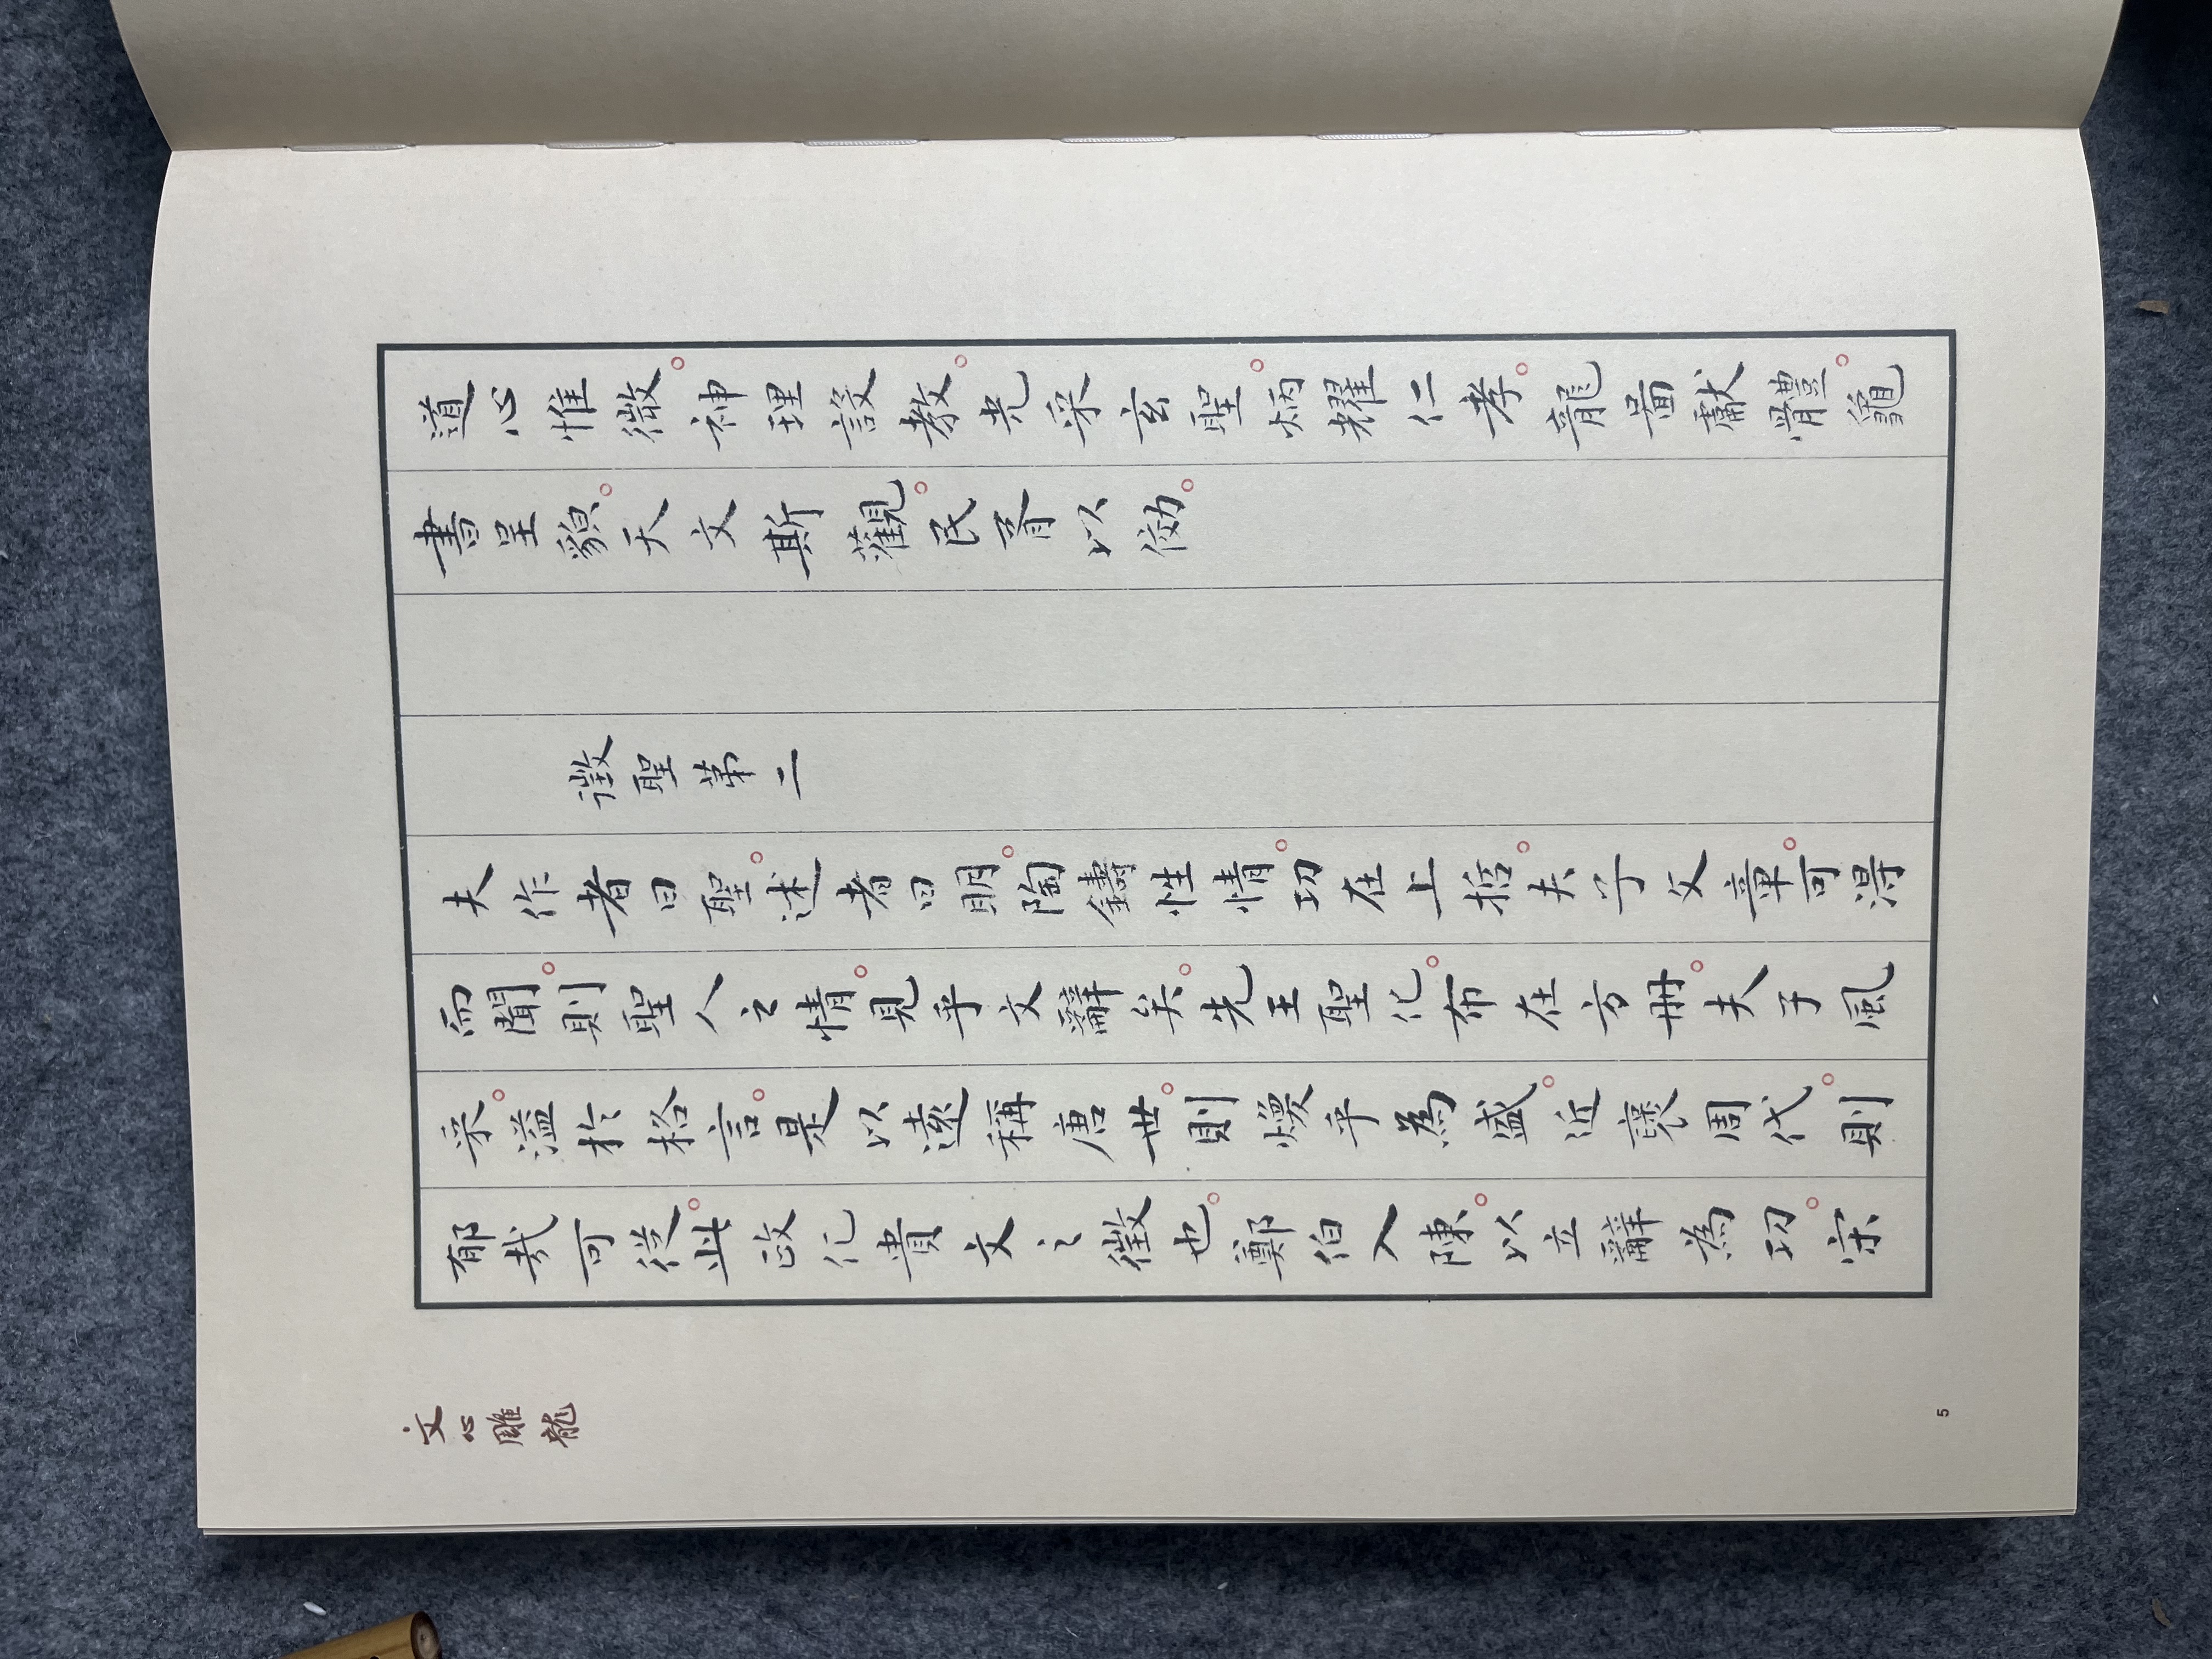 道心惟微。神理設教。光采玄聖。炳耀仁孝。龍圖獻體。龜
書呈貌。天文斯觀。民胥以俲。
徵聖第二
夫作者曰聖。述者曰明。陶鑄性情。功在上哲。夫子文章。可得
而聞。則聖人之情。見乎文辭矣。先王聖化。布在方冊。夫子風
采。溢於格言。是以遠稱唐世。則煥乎為盛。近褒周代。則
郁哉可從。此政化貴文之徵也。鄭伯入陳。以立辭為功。宋
文心雕龍
5